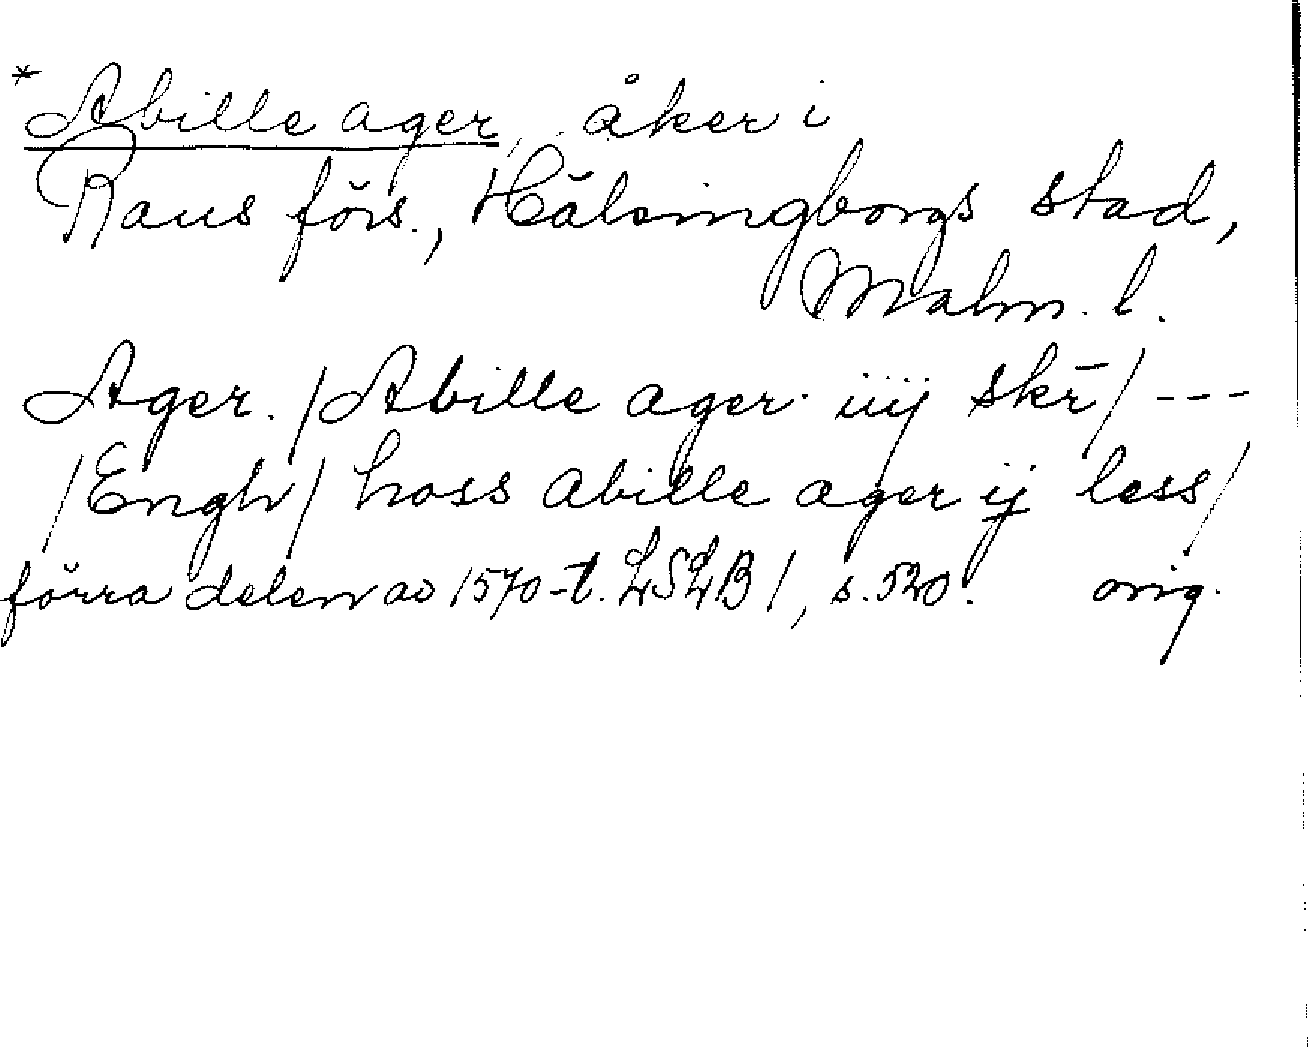 *Abille ager, åker i
Raus förs., Hälsingborgs stad,
Malm. l.
Ager. /Abille ager. iiij skr̄/ ---
/Engh/ hoss abille ager ij less/
förra delen av 1570-t. LSLB 1, s. 520. orig.